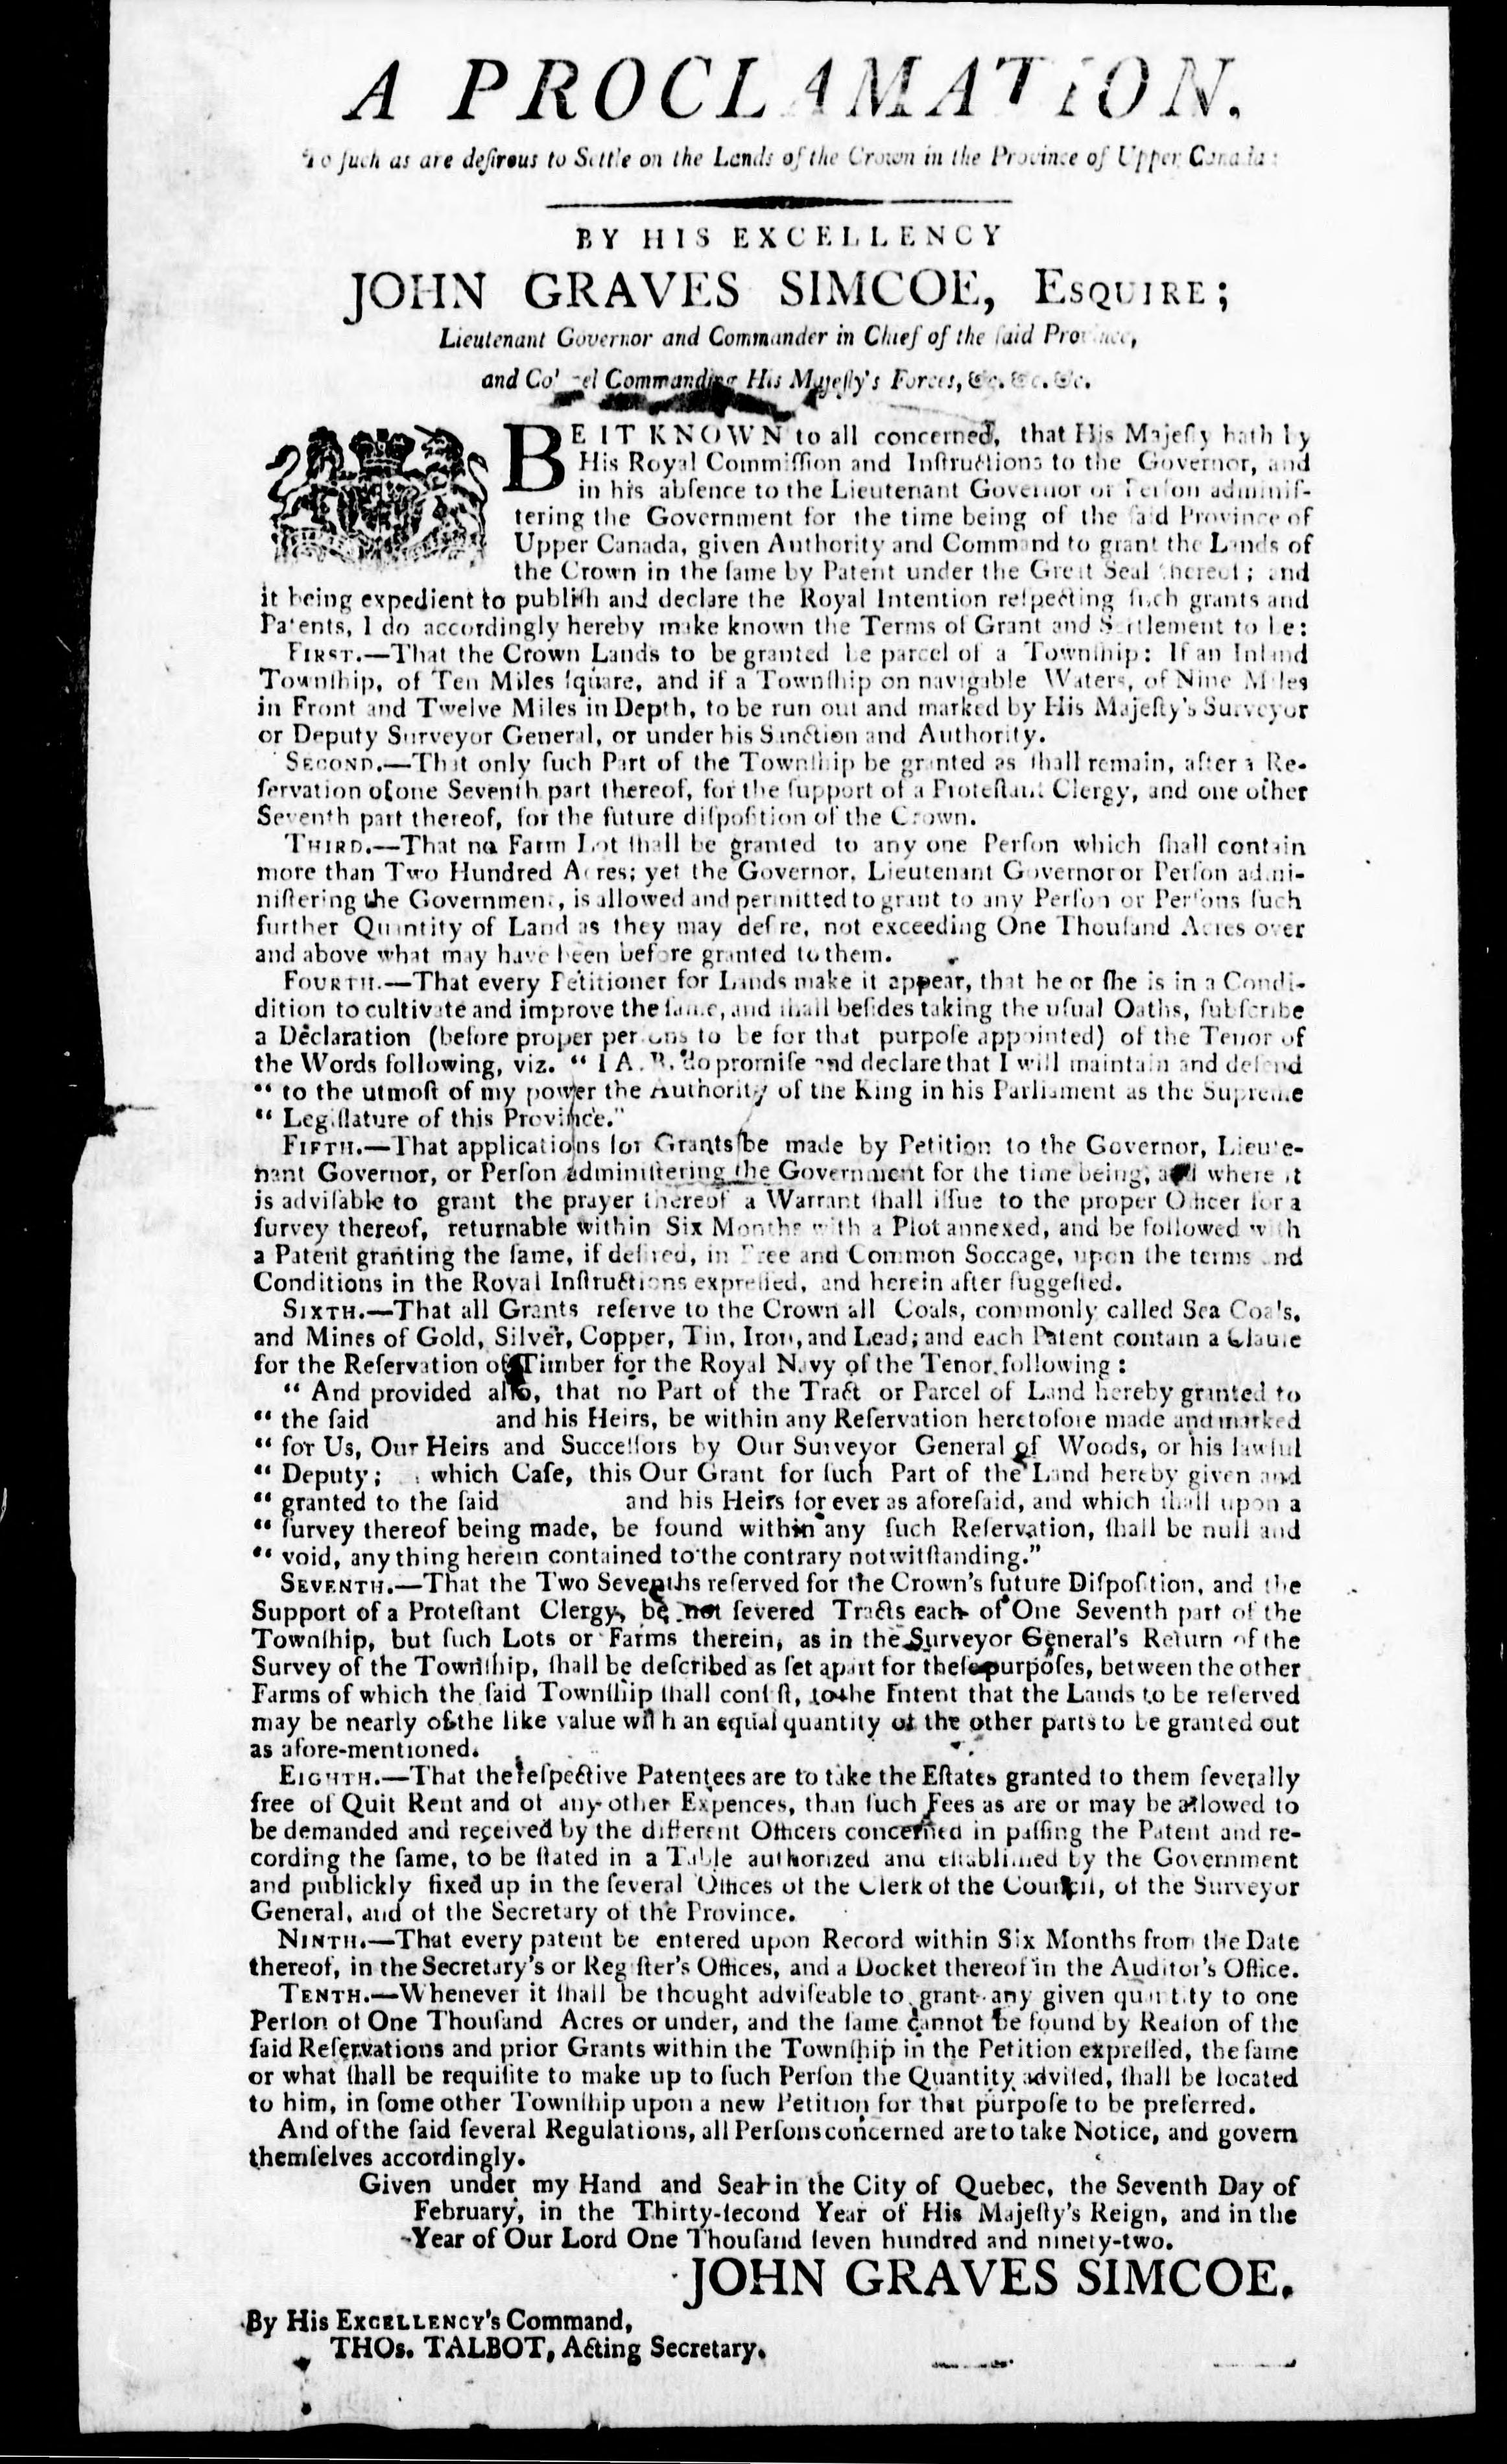 A PROCLAMATION.
To ſuch as are deſirous to Settle on the Lands of the Crown in the Province of Upper Canada:
BY HIS EXCELLENCY
JOHN GRAVES SIMCOE, ESQUIRE;
Lieutenant Governor and Commander in Chief of the ſaid Province,
and Colonel Commanding His Majeſty's Forces, &c. &c. &c.
BE IT KNOWN to all concerned, that His Majeſty hath by
His Royal Commiſſion and Inſtructions to the Governor, and
in his abſence to the Lieutenant Governor or Perſon adminiſ-
tering the Government for the time being of the ſaid Province of
Upper Canada, given Authority and Command to grant the Lands of
the Crown in the ſame by Patent under the Great Seal thereof; and
it being expedient to publiſh and declare the Royal Intention reſpecting ſuch grants and
Patents, I do accordingly hereby make known the Terms of Grant and Settlement to be:
FIRST.—That the Crown Lands to be granted be parcel of a Townſhip: If an Inland
Townſhip, of Ten Miles ſquare, and if a Townſhip on navigable Waters, of Nine Miles
in Front and Twelve Miles in Depth, to be run out and marked by His Majeſty's Surveyor
or Deputy Surveyor General, or under his Sanction and Authority.
SECOND.—That only ſuch Part of the Townſhip be granted as ſhall remain, after a Re-
ſervation of one Seventh part thereof, for the ſupport of a Proteſtant Clergy, and one other
Seventh part thereof, for the future diſpoſition of the Crown.
THIRD.—That no Farm Lot ſhall be granted to any one Perſon which ſhall contain
more than Two Hundred Acres; yet the Governor, Lieutenant Governor or Perſon admi-
niſtering the Government, is allowed and permitted to grant to any Perſon or Perſons ſuch
further Quantity of Land as they may deſire, not exceeding One Thouſand Acres over
and above what may have been before granted to them.
FOURTH.—That every Petitioner for Lands make it appear, that he or ſhe is in a Condi-
dition to cultivate and improve the ſame, and ſhall beſides taking the uſual Oaths, ſubſcribe
a Declaration (before proper perſons to be for that purpoſe appointed) of the Tenor of
the Words following, viz. “ I A. B. do promiſe and declare that I will maintain and defend
“ to the utmoſt of my power the Authority of the King in his Parliament as the Supreme
“ Legiſlature of this Province."
FIFTH.—That applications for Grants be made by Petition to the Governor, Lieute-
nant Governor, or Perſon adminiſtering the Government for the time being, and where it
is adviſable to grant the prayer thereof a Warrant ſhall iſſue to the proper Officer for a
ſurvey thereof, returnable within Six Months with a Plot annexed, and be followed with
a Patent granting the ſame, if deſired, in Free and Common Soccage, upon the terms and
Conditions in the Royal Inſtructions expreſſed, and herein after ſuggeſted.
SIXTH.—That all Grants reſerve to the Crown all Coals, commonly called Sea Coals,
and Mines of Gold, Silver, Copper, Tin, Iron, and Lead; and each Patent contain a Clauſe
for the Reſervation of Timber for the Royal Navy of the Tenor following:
“ And provided alſo, that no Part of the Tract or Parcel of Land hereby granted to
“ the ſaid and his Heirs, be within any Reſervation heretofore made and marked
“ for Us, Our Heirs and Succeſſors by Our Surveyor General of Woods, or his lawful
“ Deputy; which Caſe, this Our Grant for ſuch Part of the Land hereby given and
“ granted to the ſaid and his Heirs for ever as aforeſaid, and which ſhall upon a
“ ſurvey thereof being made, be found within any ſuch Reſervation, ſhall be null and
“ void, any thing herein contained to the contrary notwitſtanding.”
SEVENTH.—That the Two Sevenths reſerved for the Crown's future Diſpoſition, and the
Support of a Proteſtant Clergy, be not ſevered Tracts each of One Seventh part of the
Townſhip, but ſuch Lots or Farms therein, as in the Surveyor General's Return of the
Survey of the Townſhip, ſhall be deſcribed as ſet apart for theſe purpoſes, between the other
Farms of which the ſaid Townſhip ſhall conſiſt, to the Intent that the Lands to be reſerved
may be nearly of the like value with an equal quantity of the other parts to be granted out
as afore-mentioned.
EIGHTH.—That the reſpective Patentees are to take the Eſtates granted to them ſeverally
free of Quit Rent and of any other Expences, than ſuch Fees as are or may be allowed to
be demanded and received by the different Officers concerned in paſſing the Patent and re-
cording the ſame, to be ſtated in a Table authorized and eſtabliſhed by the Government
and publickly fixed up in the ſeveral Offices of the Clerk of the Council, of the Surveyor
General, and of the Secretary of the Province.
NINTH.—That every patent be entered upon Record within Six Months from the Date
thereof, in the Secretary's or Regiſter's Offices, and a Docket thereof in the Auditor's Office.
TENTH.—Whenever it ſhall be thought adviſeable to grant any given quantity to one
Perſon of One Thouſand Acres or under, and the ſame cannot be found by Reaſon of the
ſaid Reſervations and prior Grants within the Townſhip in the Petition expreſſed, the ſame
or what ſhall be requiſite to make up to ſuch Perſon the Quantity adviſed, ſhall be located
to him, in ſome other Townſhip upon a new Petition for that purpoſe to be preferred.
And of the ſaid ſeveral Regulations, all Perſons concerned are to take Notice, and govern
themſelves accordingly.
Given under my Hand and Seal in the City of Quebec, the Seventh Day of
February, in the Thirty-ſecond Year of His Majeſty's Reign, and in the
Year of Our Lord One Thouſand ſeven hundred and ninety-two.
JOHN GRAVES SIMCOE.
By His EXCELLENCY's Command,
THOs. TALBOT, Acting Secretary.